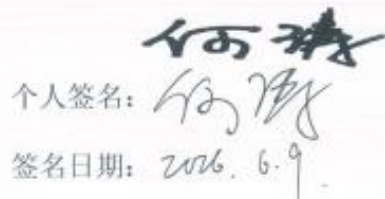 何
个人签名：何
签名日期：2026.6.9